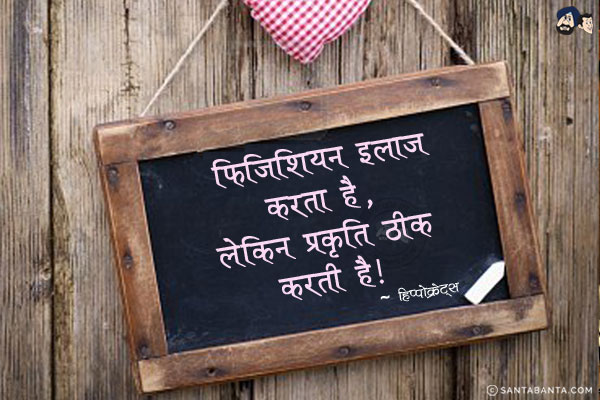 फिजिशियन इलाज
करता है,
लेकिन प्रकृति ठीक
करती है!
~ हिप्पोक्रेट्स
© SANTABANTA.COM